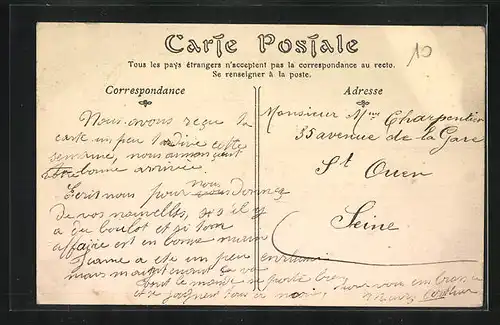 Carte Postale
Tous les pays étrangers n'acceptent pas la correspondance au recto.
Se renseigner à la poste.
10
Correspondance
Nous avons reçu ta
carte un peu tardive cette
semaine, nous aimons
bonne arrivée.
Ecris nous pour nous Donner
de vos nouvelles, s'il y
a du boulot et si ton
affaire est en bonne main
Jeanne a été un peu enrhumé
mais maintenant ça va
tout le monde se porte bien
et
Adresse
Monsieur Mme Charpentier
35 avenue de la Gare
St Ouen
Seine
vous embrasse